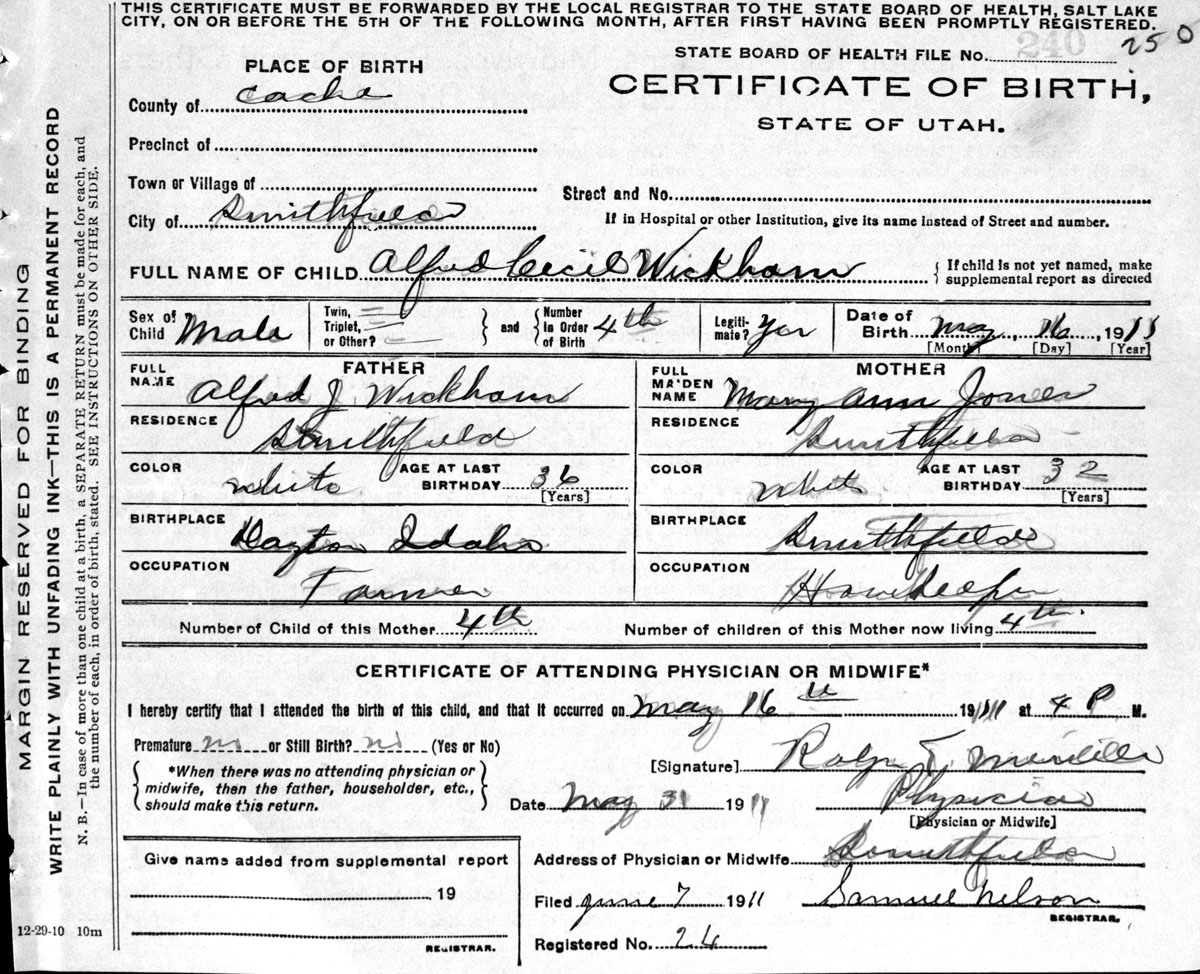 THIS CERTIFICATE MUST BE FORWARDED BY THE LOCAL REGISTRAR TO THE STATE BOARD OF HEALTH, SALT LAKE
CITY, ON OR BEFORE THE 5TH OF THE FOLLOWING MONTH, AFTER FIRST HAVING BEEN PROMPTLY REGISTERED.
240
250
STATE BOARD OF HEALTH FILE No.
CERTIFICATE OF BIRTH,
STATE OF UTAH.
PLACE OF BIRTH
County of Cache
Precinct of
Town or Village of
Street and No.
City of Smithfield
If in Hospital or other Institution, give its name instead of Street and number.
FULL NAME OF CHILD Alfred Cecil Wickham
{ If child is not yet named, make
supplemental report as directed
Sex of Child Male
Twin, Triplet, or Other?
and
Number in Order of Birth 4th
Legitimate? Yes
Date of Birth May, 16, 1911
[Month] [Day] [Year]
FATHER
FULL NAME Alfred J. Wickham
RESIDENCE Smithfield
COLOR White
AGE AT LAST BIRTHDAY 36
[Years]
BIRTHPLACE Dayton Idaho
OCCUPATION Farmer
MOTHER
FULL MAIDEN NAME Mary Ann Jones
RESIDENCE Smithfield
COLOR White
AGE AT LAST BIRTHDAY 32
[Years]
BIRTHPLACE Smithfield
OCCUPATION Housekeeper
Number of Child of this Mother 4th
Number of children of this Mother now living 4th
CERTIFICATE OF ATTENDING PHYSICIAN OR MIDWIFE*
I hereby certify that I attended the birth of this child, and that it occurred on May 16th 1911 at 4 P M.
Premature no or Still Birth? no (Yes or No)
{ *When there was no attending physician or
midwife, then the father, householder, etc.,
should make this return. }
[Signature] Ralph T. Merrill
Date May 31 1911
Physician
[Physician or Midwife]
Give name added from supplemental report
19
REGISTRAR.
Address of Physician or Midwife Smithfield
Filed June 7 1911
Samuel Nelson
REGISTRAR.
Registered No. 24
12-29-10 10m
MARGIN RESERVED FOR BINDING
WRITE PLAINLY WITH UNFADING INK—THIS IS A PERMANENT RECORD
N. B.—In case of more than one child at a birth, a SEPARATE RETURN must be made for each, and
the number of each, in order of birth, stated. SEE INSTRUCTIONS ON OTHER SIDE.